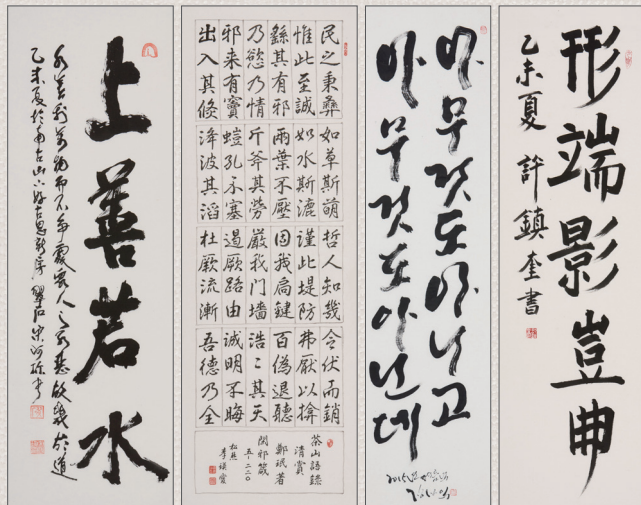 上善若水
水善利萬物而不爭處衆人之所惡故幾於道
乙未夏於南古山下好古思新室
民之秉彝
惟此至誠
繇其有邪
乃慾乃情
邪来有竇
出入其倏
如草斯萌
如水斯漉
兩葉不壓
斤斧其勞
螘孔不塞
洚波其滔
哲人知幾
謹此堤防
固我扃鍵
嚴我門墻
遏厥路由
杜厥流漸
令伏而銷
弗厭以揜
百偽退聽
浩〻其天
誠明不晦
吾德乃全
茶山語錄
清賞
鄭珉著
閑邪箴
아무것도아니고
아무것도아닌데
形端影豈曲
乙未夏 許鎮奎書